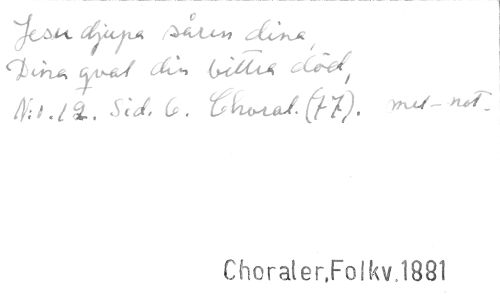 Jesu djupa såren dina,
Dina qval din bittra död,
N:o.12. Sid. 6. Choral. (77). mel-not-
Choraler,Folkv.1881